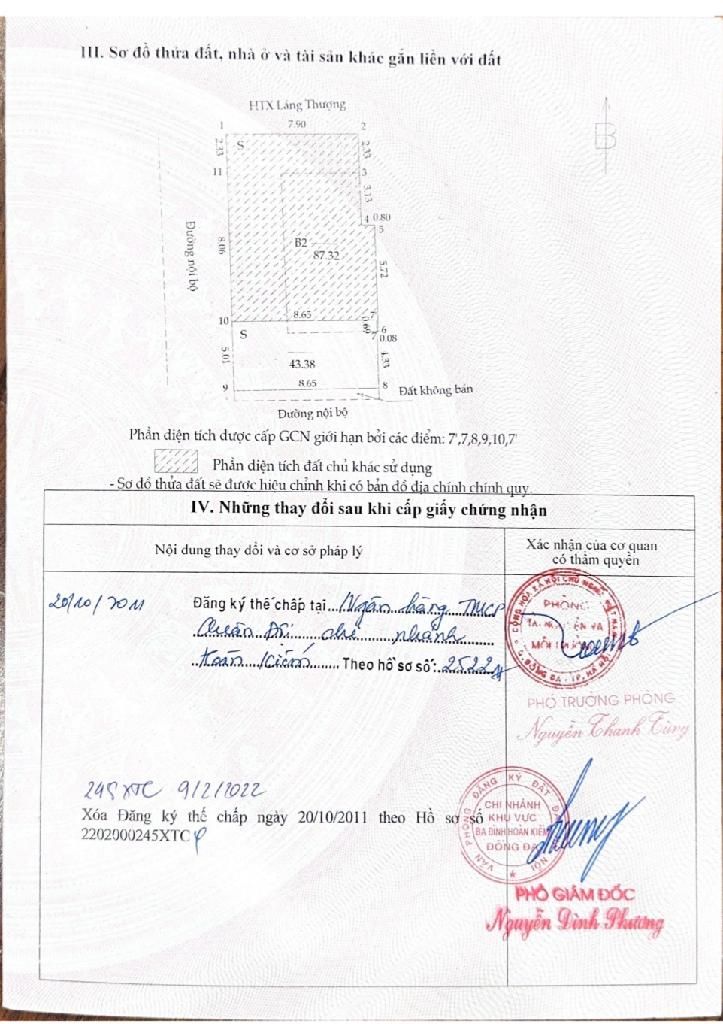 III. Sơ đồ thửa đất, nhà ở và tài sản khác gắn liền với đất
HTX Láng Thượng
7.90
1
2
2.33
S
2.33
B
11
3
3.13
4
0.80
5
Đường nội bộ
8.06
B2
87.32
5.72
8.65
7'
10
S
6
7
0.08
5.01
43.38
4.33
8.65
9
8
Đất không bán
Đường nội bộ
Phần diện tích được cấp GCN giới hạn bởi các điểm: 7',7,8,9,10,7'
Phần diện tích đất chủ khác sử dụng
- Sơ đồ thửa đất sẽ được hiệu chỉnh khi có bản đồ địa chính chính quy
IV. Những thay đổi sau khi cấp giấy chứng nhận
Nội dung thay đổi và cơ sở pháp lý
Xác nhận của cơ quan
có thẩm quyền
20/10/2011
Đăng ký thế chấp tại Ngân hàng TMCP
Quân Đội chi nhánh
Hoàn Kiếm Theo hồ sơ số: 2522
PHÒNG
TÀI NGUYÊN VÀ
MÔI TRƯỜNG
Q. ĐỐNG ĐA - TP. HÀ NỘI
PHÓ TRƯỞNG PHÒNG
Nguyễn Thanh Tùng
245 XTC 9/2/2022
Xóa Đăng ký thế chấp ngày 20/10/2011 theo Hồ sơ số
2202000245XTC
VĂN PHÒNG ĐĂNG KÝ ĐẤT ĐAI HÀ NỘI
CHI NHÁNH
KHU VỰC
BA ĐÌNH HOÀN KIẾM
ĐỐNG ĐA
PHÓ GIÁM ĐỐC
Nguyễn Đình Phương